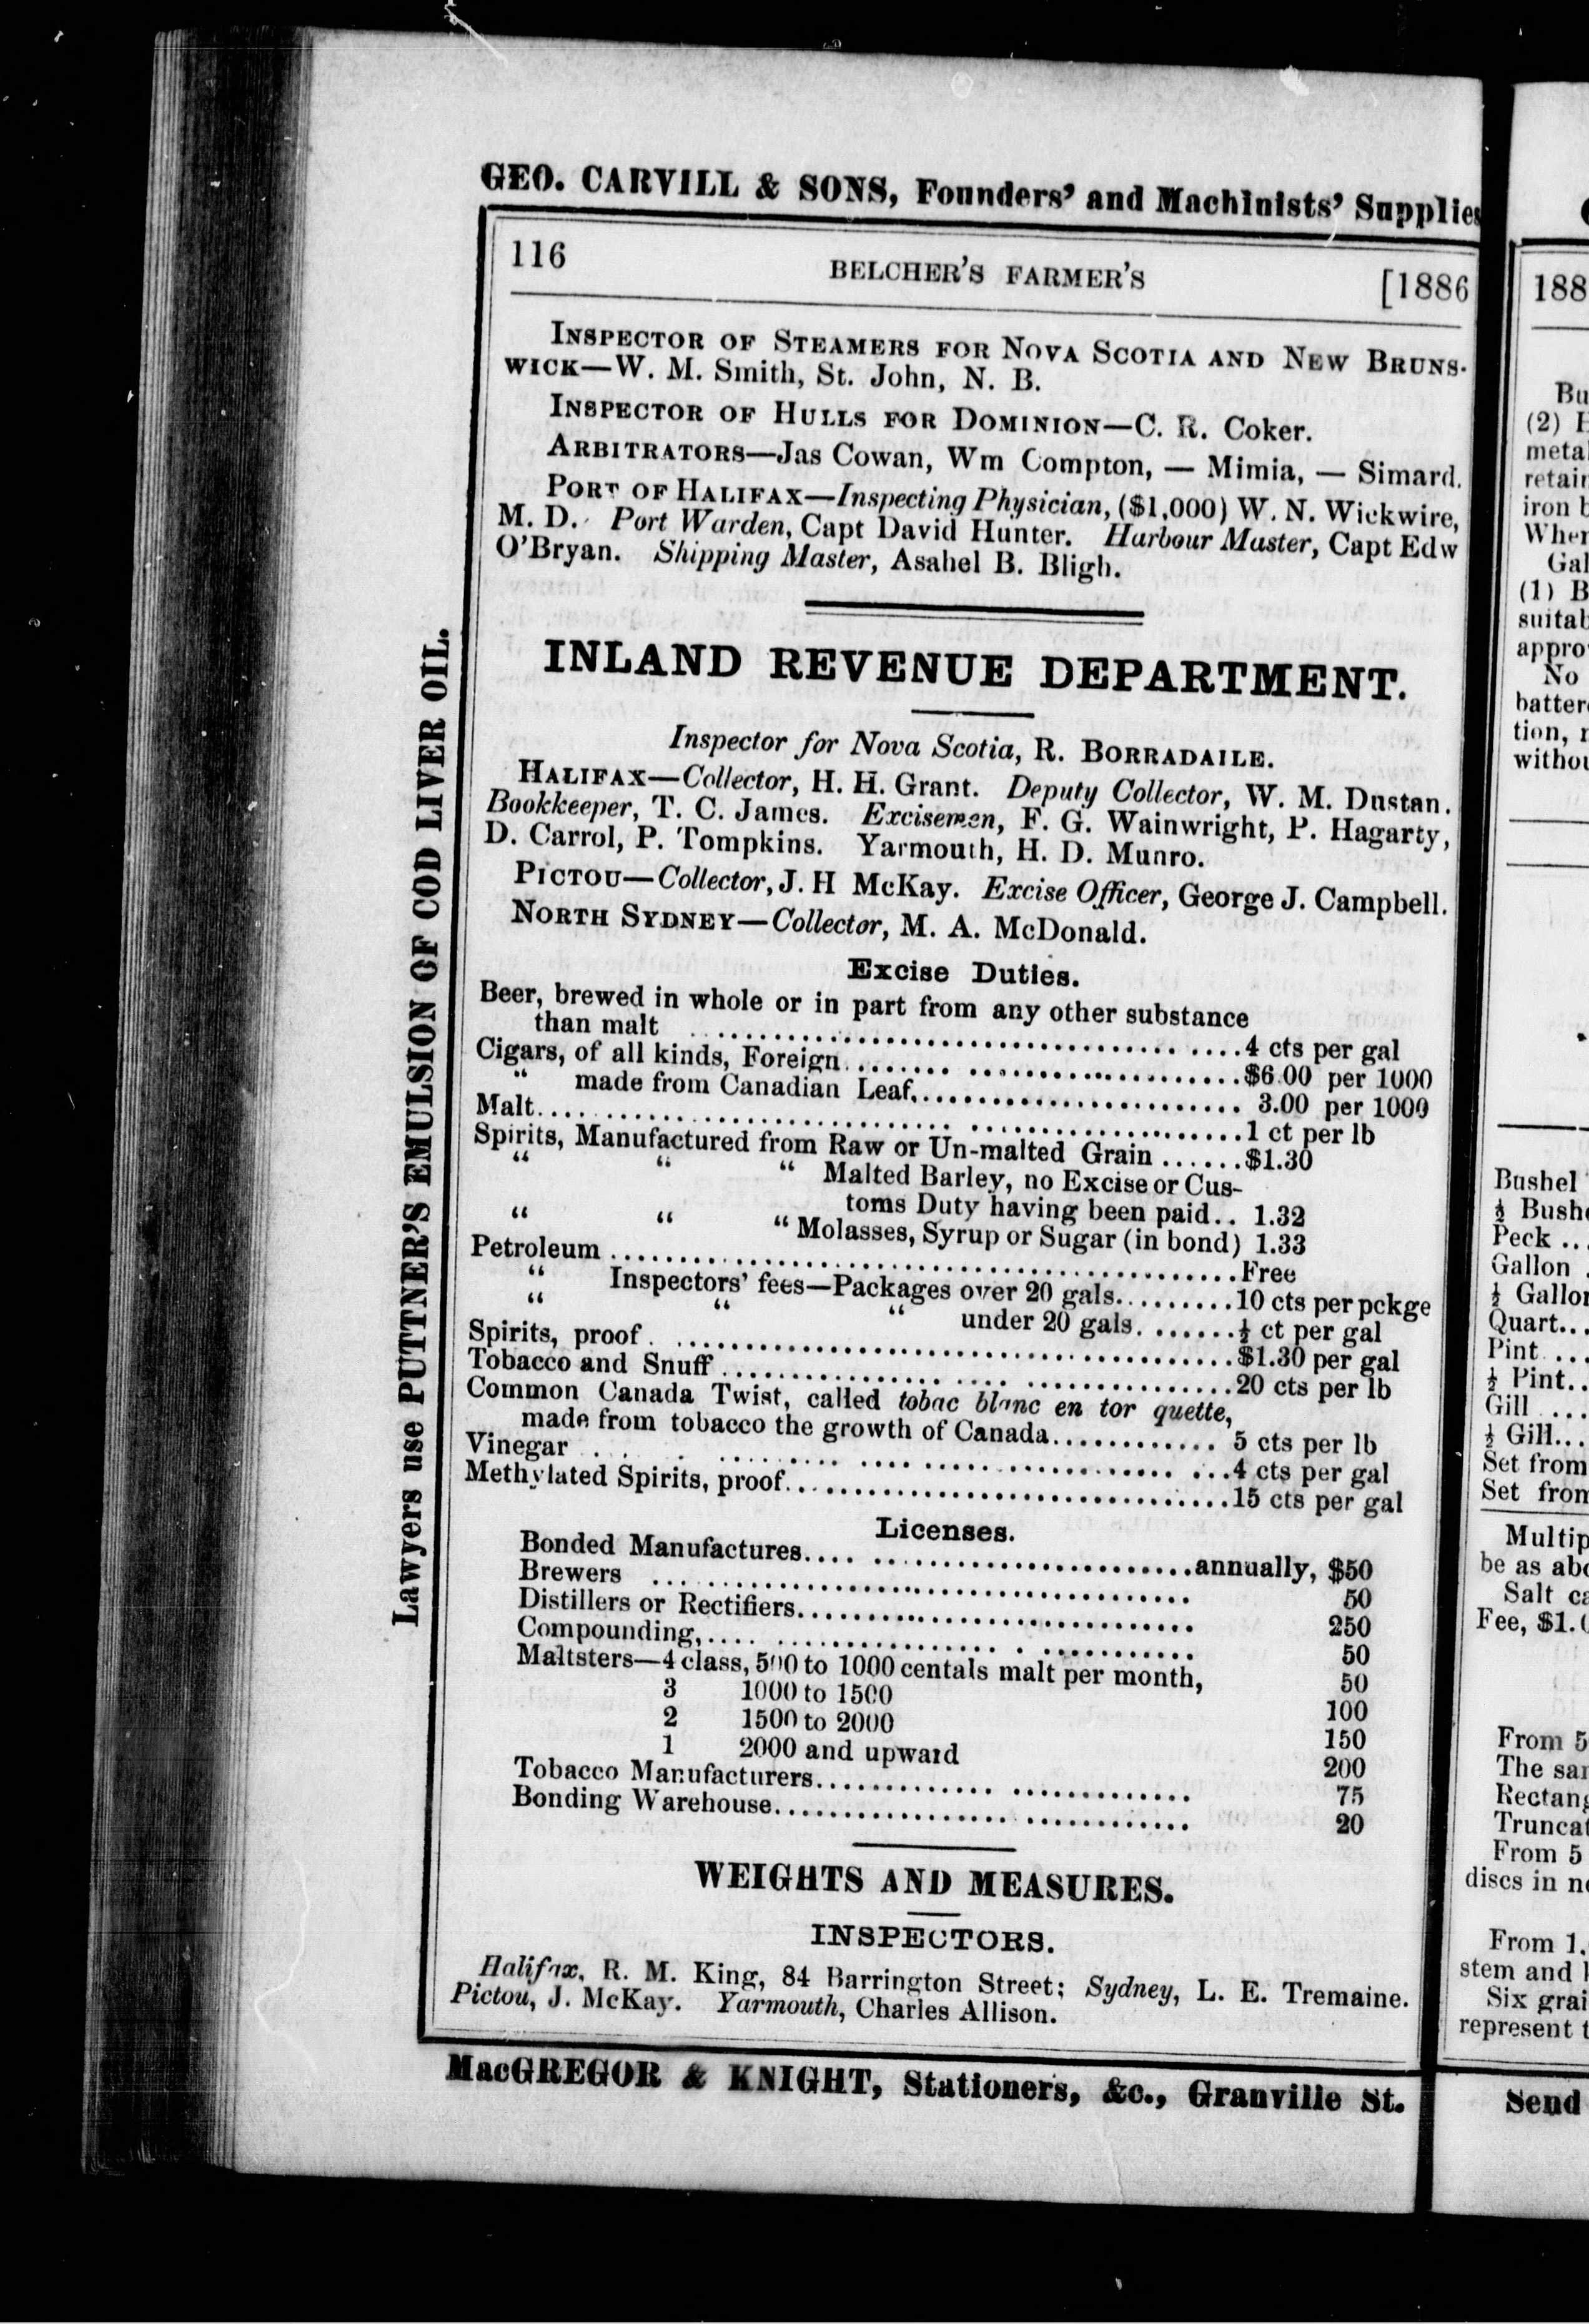 GEO. CARVILL & SONS, Founders' and Machinists' Supplies
116 BELCHER'S FARMER'S [1886
INSPECTOR OF STEAMERS FOR NOVA SCOTIA AND NEW BRUNS-
WICK—W. M. Smith, St. John, N. B.
INSPECTOR OF HULLS FOR DOMINION—C. R. Coker.
ARBITRATORS—Jas Cowan, Wm Compton, — Mimia, — Simard.
PORT OF HALIFAX—Inspecting Physician, ($1,000) W. N. Wickwire,
M. D. Port Warden, Capt David Hunter. Harbour Master, Capt Edw
O'Bryan. Shipping Master, Asahel B. Bligh.
INLAND REVENUE DEPARTMENT.
Inspector for Nova Scotia, R. BORRADAILE.
HALIFAX—Collector, H. H. Grant. Deputy Collector, W. M. Dustan.
Bookkeeper, T. C. James. Excisemen, F. G. Wainwright, P. Hagarty,
D. Carrol, P. Tompkins. Yarmouth, H. D. Munro.
PICTOU—Collector, J. H McKay. Excise Officer, George J. Campbell.
NORTH SYDNEY—Collector, M. A. McDonald.
Excise Duties.
Beer, brewed in whole or in part from any other substance
than malt ........ 4 cts per gal
Cigars, of all kinds, Foreign ........ $6.00 per 1000
" made from Canadian Leaf, ........ 3.00 per 1000
Malt ........ 1 ct per lb
Spirits, Manufactured from Raw or Un-malted Grain ...... $1.30
" " " Malted Barley, no Excise or Cus-
toms Duty having been paid.. 1.32
" " " Molasses, Syrup or Sugar (in bond) 1.33
Petroleum ........ Free
" Inspectors' fees—Packages over 20 gals. ........ 10 cts per pckge
" " " under 20 gals. ....... ½ ct per gal
Spirits, proof ........ $1.30 per gal
Tobacco and Snuff ........ 20 cts per lb
Common Canada Twist, called tobac blanc en tor quette,
made from tobacco the growth of Canada ........ 5 cts per lb
Vinegar ........ 4 cts per gal
Methylated Spirits, proof ........ 15 cts per gal
Licenses.
Bonded Manufactures ........ annually, $50
Brewers ........ 50
Distillers or Rectifiers ........ 250
Compounding, ........ 50
Maltsters—4 class, 500 to 1000 centals malt per month, 50
3 1000 to 1500 100
2 1500 to 2000 150
1 2000 and upward 200
Tobacco Manufacturers ........ 75
Bonding Warehouse ........ 20
WEIGHTS AND MEASURES.
INSPECTORS.
Halifax, R. M. King, 84 Barrington Street; Sydney, L. E. Tremaine.
Pictou, J. McKay. Yarmouth, Charles Allison.
MacGREGOR & KNIGHT, Stationers, &c., Granville St.
Lawyers use PUTTNER'S EMULSION OF COD LIVER OIL.
188
(2)
iron
(1) B
No
Bushel
½
Peck ..
Gallon
½
Quart...
Pint ...
½ Pint..
Gill ...
½ Gill...
Set from
Set from
be as
Salt
Fee,
From 5
The
From 5
discs in
From 1.
stem and
Six
represent
Send